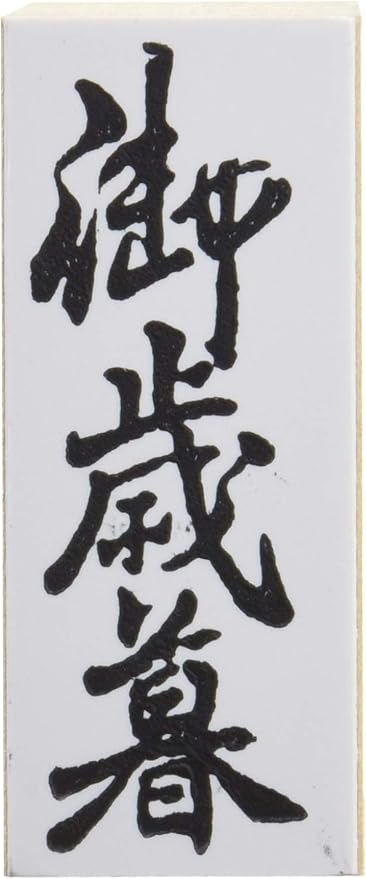 御歳暮